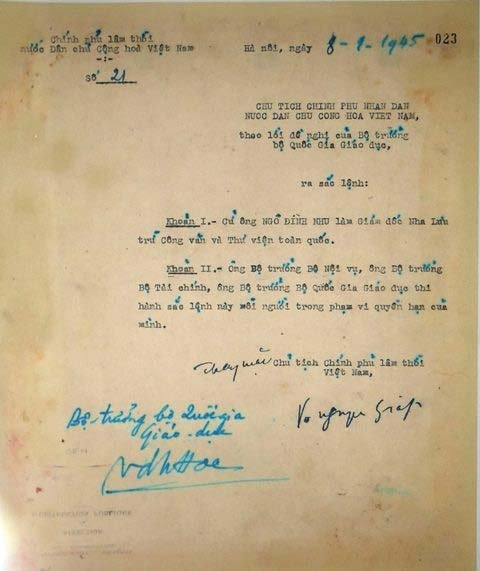 Chính phủ lâm thời
nước Dân chủ Cộng hoà Việt Nam
-:-
Số 21
Hà nội, ngày 8-9-1945
023
CHU TICH CHINH PHU NHAN DAN
NUOC DAN CHU CONG HOA VIET NAM,
theo lời đề nghị của Bộ trưởng
bộ Quốc Gia Giáo dục,
ra sắc lệnh:
Khoản I.- Cử ông NGÔ ĐÌNH NHU làm Giám đốc Nha Lưu
trữ Công văn và Thư viện toàn quốc.
Khoản II.- Ông Bộ trưởng Bộ Nội vụ, ông Bộ trưởng
Bộ Tài chính, ông Bộ trưởng Bộ Quốc Gia Giáo dục thi
hành sắc lệnh này mỗi người trong phạm vi quyền hạn của
mình.
Thay mặt Chủ tịch Chính phủ lâm thời
Việt Nam,
Võ Nguyên Giáp
Bộ-trưởng bộ Quốc gia
Giáo-dục
VĐHHoe